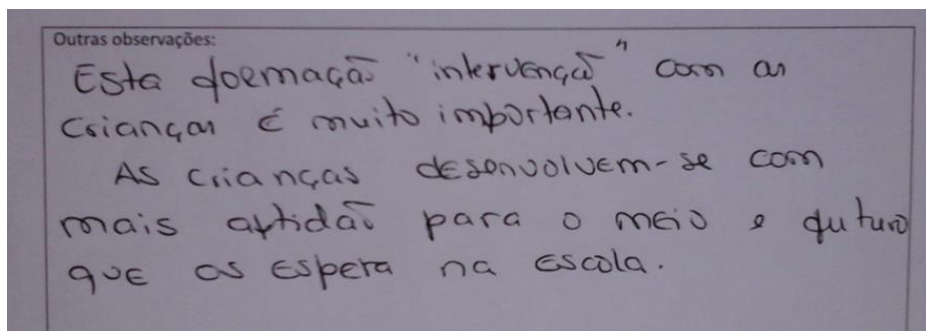 Outras observações:
Esta formação "intervenção" com as
crianças é muito importante.
As crianças desenvolvem-se com
mais aptidão para o meio e futuro
que os espera na escola.